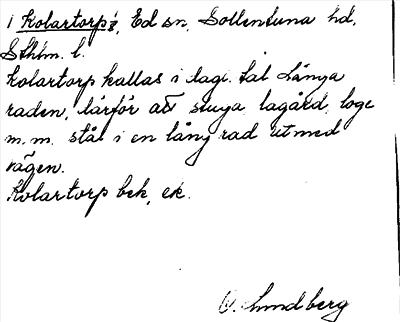 i Kolartorp, Ed sn, Sollentuna hd,
Sthlm. l.
Kolartorp kallas i dagl. tal Långa
raden, därför att stuga, lagård, loge
m.m. står i en lång rad utmed
vägen.
Kolartorp bek, ek.
O. Lundberg